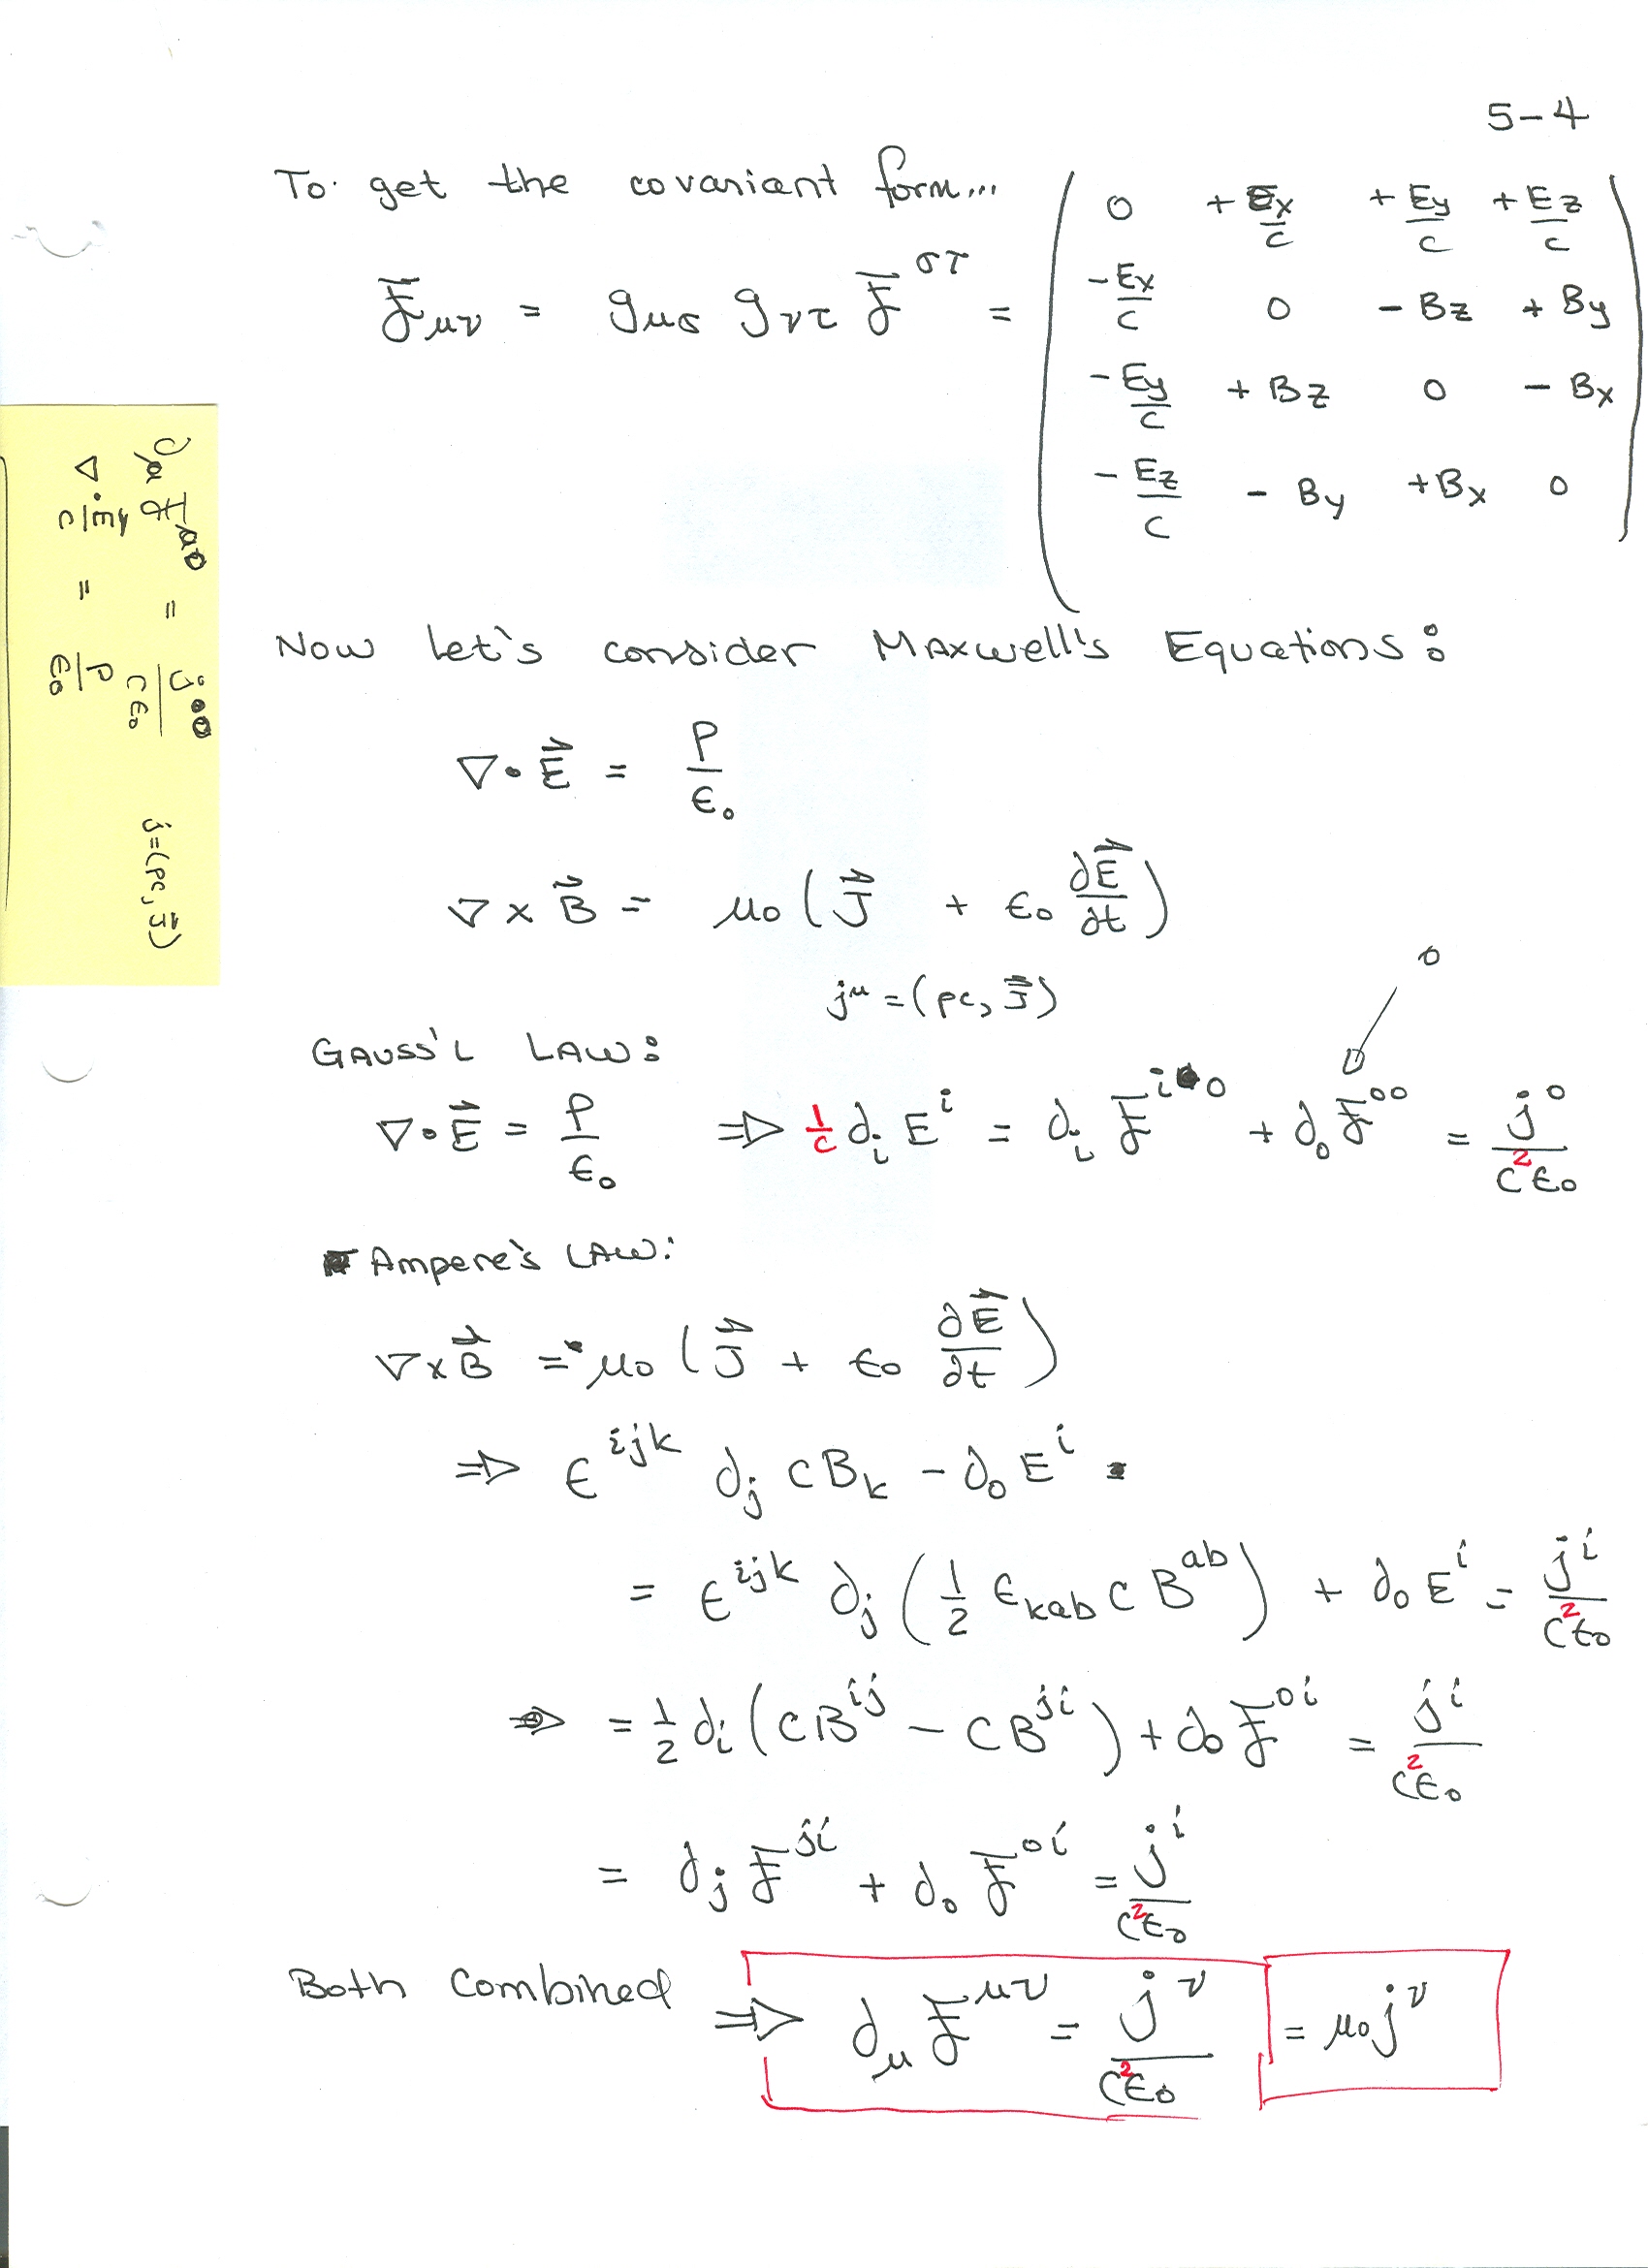 5-4
To get the covariant form...
ℱ_μν = g_μσ g_ντ ℱ^στ = ( 0 +Ex/c +Ey/c +Ez/c
-Ex/c 0 -Bz +By
-Ey/c +Bz 0 -Bx
-Ez/c -By +Bx 0 )
∂_μ ℱ^μ0 = j^0/(cε₀) j=(ρc, J⃗)
∇·E⃗/c = ρ/ε₀
Now let's consider Maxwell's Equations:
∇·E⃗ = ρ/ε₀
∇×B⃗ = μ₀(J⃗ + ε₀ ∂E⃗/∂t)
j^μ = (ρc, J⃗)
0
Gauss'L Law:
∇·E⃗ = ρ/ε₀ ⇒ 1/c ∂_i E^i = ∂_i ℱ^i0 + ∂_0 ℱ^00 = j^0/(c²ε₀)
Ampere's Law:
∇×B⃗ = μ₀(J⃗ + ε₀ ∂E⃗/∂t)
⇒ ε^ijk ∂_j cB_k - ∂_0 E^i
= ε^ijk ∂_j (1/2 ε_kab c B^ab) + ∂_0 E^i = j^i/(c²ε₀)
⇒ = 1/2 ∂_i (cB^ij - cB^ji) + ∂_0 ℱ^0i = j^i/(c²ε₀)
= ∂_j ℱ^ji + ∂_0 ℱ^0i = j^i/(c²ε₀)
Both Combined ⇒ ∂_μ ℱ^μν = j^ν/(c²ε₀) = μ₀ j^ν